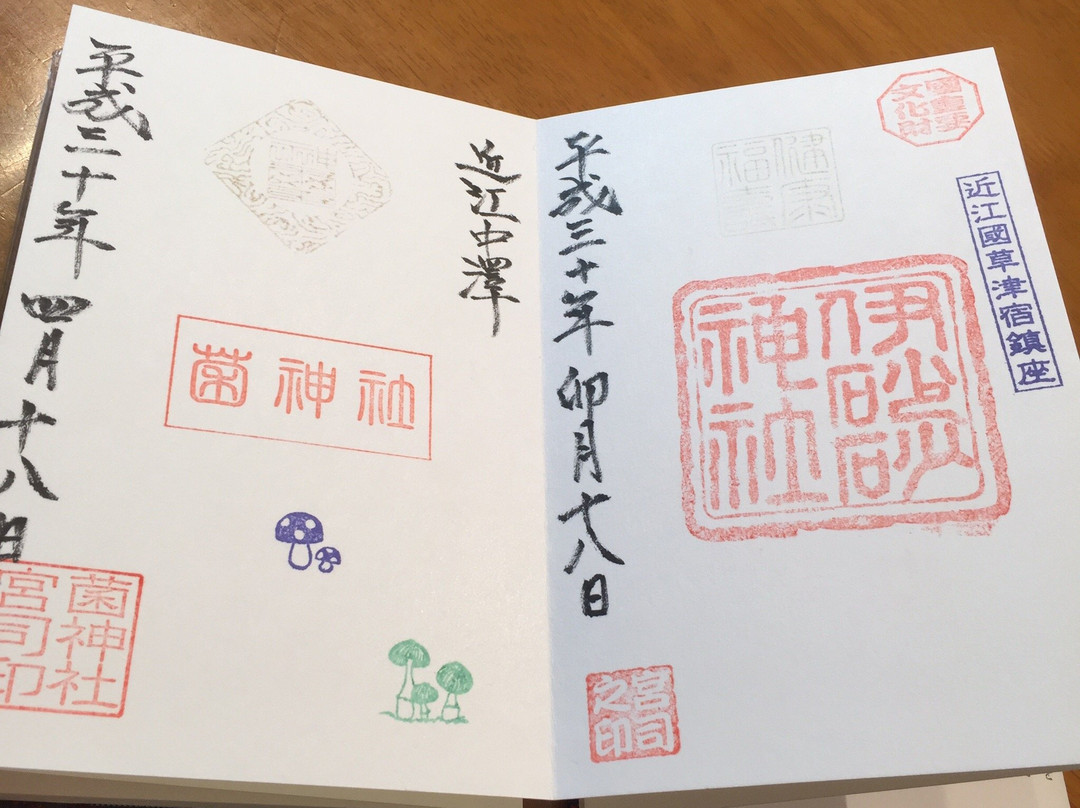 國重要
文化財
近江國草津宿鎮座
健康
伊砂砂
神社
平成三十年卯月十八日
宮司
之印
近江中澤
菌神社
平成三十年四月十八日
菌神社
宮司印